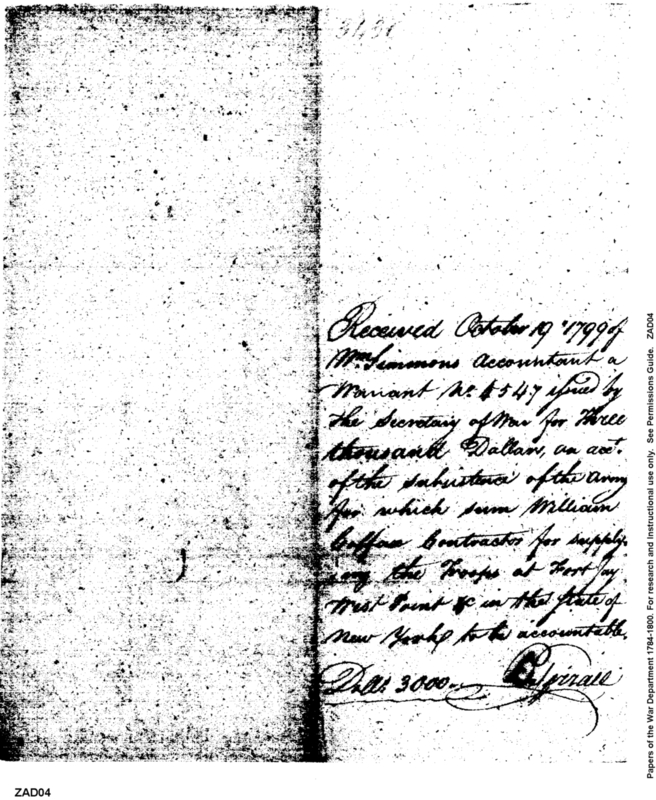 3431
Received October 19th 1799 of
Wm. Simmons Accountant a
Warrant No. 4547 issued by
the Secretary of War for Three
thousand Dollars, on acct.
of the subsistence of the Army
for which sum William
Colfax Contractor for supply-
ing the Troops at Fort Jay
West Point &c in the State of
New York, to be accountable.
Dolls. 3000
Papers of the War Department 1784-1800. For research and Instructional use only. See Permissions Guide. ZAD04
ZAD04